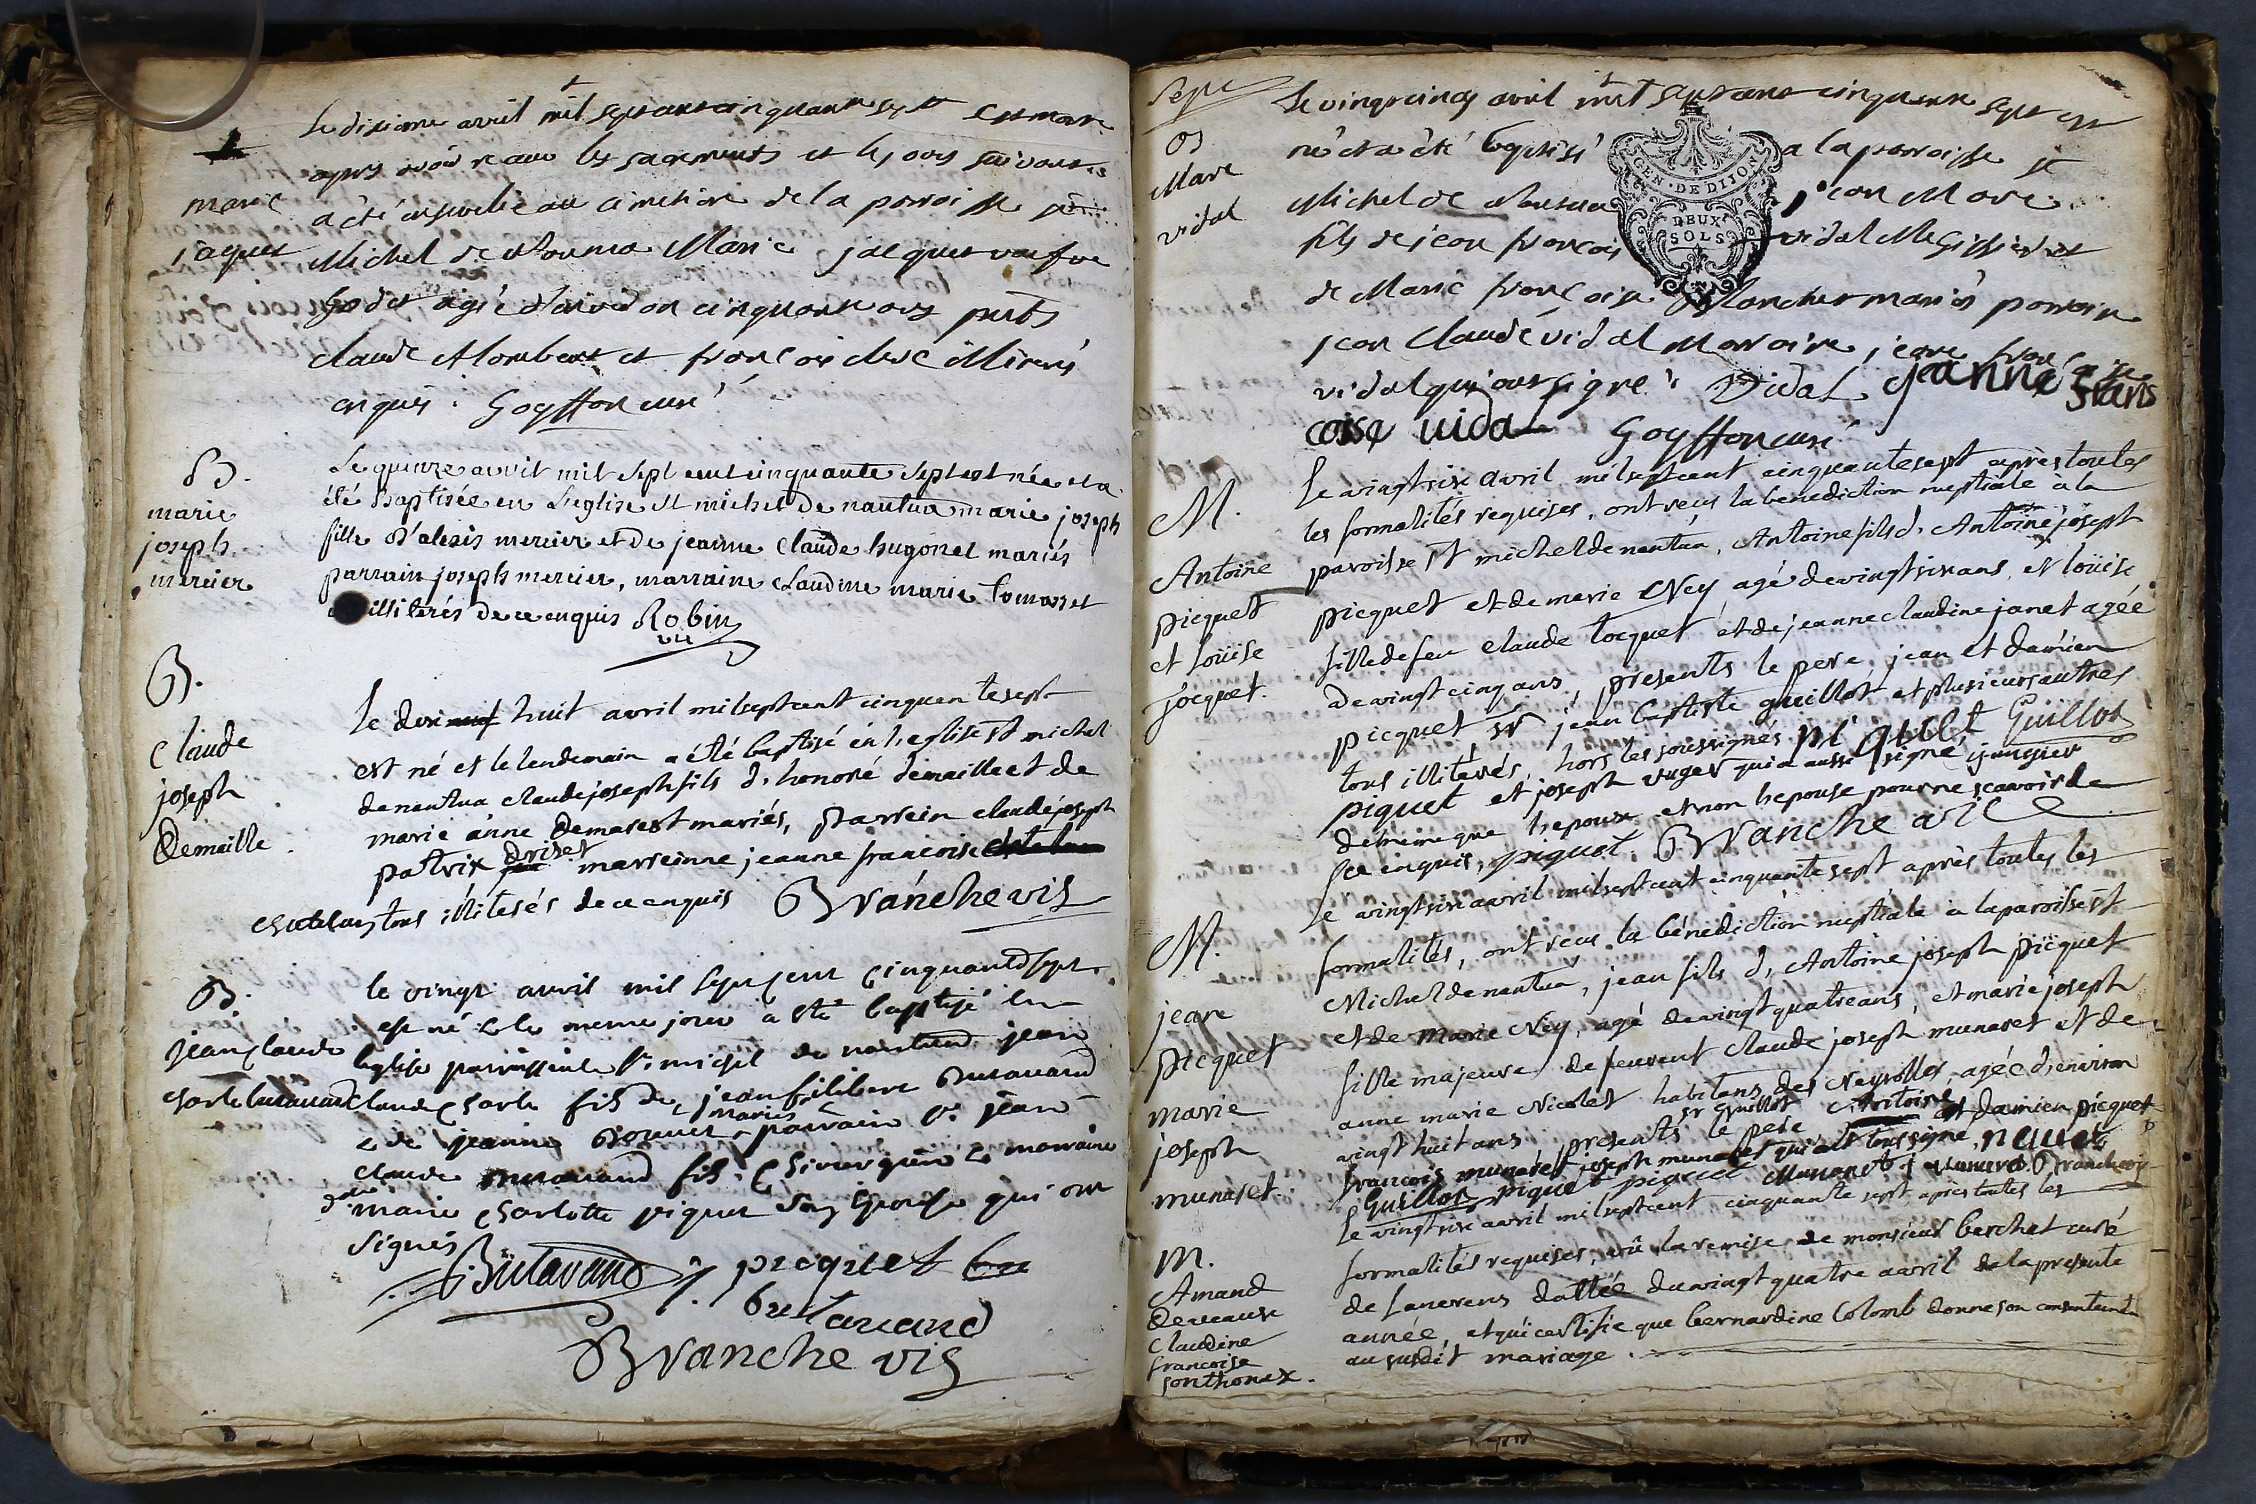 Le dixieme avril mil sept cent cinquante sept est morte
apres avoir receu les sacrements et le jour suivant
marie
a été ensevelie au cimetiere de la paroisse st
jaquet
Michel de Nantua Marie jacquet veufve
agée d'environ cinquante ans pnts
claude et françois clerc illiterés
enquis. Goyffon curé
B.
marie
joseph
mercier
Le quinze avvil mil sept cent cinquante sept est née et a
été Baptisée en L'eglise st michel De nantua marie joseph
fille D'alexis mercier et de jeanne Claude hugonet mariés
parrain joseph mercier, marraine claudine marie tomasset
illiterés de ce enquis Robin
vic
B.
Claude
joseph
Demaille.
Le dixneuf huit avril mil sept cent cinquante sept
est né et le lendemain a été baptisé en l'eglise st michel
de nantua claude joseph fils d'honoré demaille et de
marie anne Demarest mariés, Parrein claude joseph
patrix Driset marreinne jeanne francoise
chateluy tous illiterés de ce enquis Branche vis
B.
jean claude
charle butavand
le vingt avril mil sept cent cinquante sept
est né & le meme jour a été baptisé en
l'eglise parroissiale st michel de nantua jean
claude charle fils de jean filibert Butavand
& de jeanne Bouvet mariés parrain sr jean
claude Butavand fils chirurgien & marraine
dlle marie charlotte piquet son epouse qui ont
signés
Butavand picquet
butavand
Branche vis
Sept
B
Marc
vidal
Le vingt cinq avril mil sept cent cinquante sept est
né et a été baptisé a la parroisse st
GEN. DE DIJON
DEUX
SOLS
Michel de Nantua jean Marc
fils de jean françois vidal Megissier et
de Marie françoise Blanchet mariés parrain
jean Claude vidal Marraine jeane françoise
vidal qui ont signé. Vidal jeanne frans
coise vidal Goyffon curé
M.
Antoine
picquet
et Loüise
jocquet.
Le vingt six avril mil sept cent cinquante sept après toutes
les formalités requises, ont recus la benediction nuptiale a la
paroisse st michel de nantua, Antoine fils d'Antoine joseph
picquet et de marie Ney agé de vingt six ans, et loüise
fille de feu claude tocquet et de jeanne claudine janet agée
de vingt cinq ans, présents le pere, jean et damien
picquet sr jean baptiste guillot et plusieurs autres
tous illiterés, hors les soussignés piquet Guillot
piquet et joseph vuger qui a aussi signé j vugier
de meme que l'epoux et non l'epouse pour ne scavoir de
ce enquis, piquet. Branche vic
M.
jean
picquet
marie
joseph
munaret.
Le vingt six avril mil sept cent cinquante sept après toutes les
formalités, ont recus la bénédiction nuptiale a la paroisse st
Michel de nantua, jean fils d'Antoine joseph picquet
et de Marie Ney, agé de vingt quatre ans, et marie joseph
fille majeure de feu vent Claude joseph munaret et de
anne marie Nicolet habitans des Neyrolles agée d'environ
vingt huit ans présents le pere sr Guillot Antoine et damien picquet
francois munaret joseph munaret qui ont tous signé,
Guillot piquet piquet Munaret j munaret Branche vic
m.
Amand
Deveaux
Claudine
francoise
sonthonax.
Le vingt six avril mil sept cent cinquante sept après toutes les
formalités requises, vû la remise de monsieur berchet curé
de dattée du vingt quatre avril de la presente
année, et qui certifie que bernardine Colomb donne son consentement
au susdit mariage.